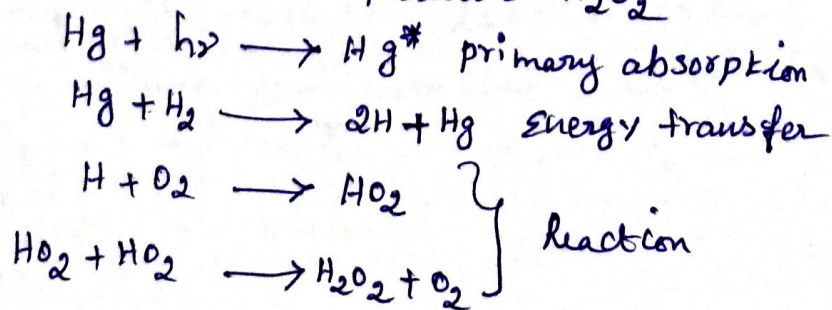 H2O2
Hg + hν ⟶ Hg* primary absorption
Hg + H2 ⟶ 2H + Hg Energy transfer
H + O2 ⟶ HO2
HO2 + HO2 ⟶ H2O2 + O2 } Reaction